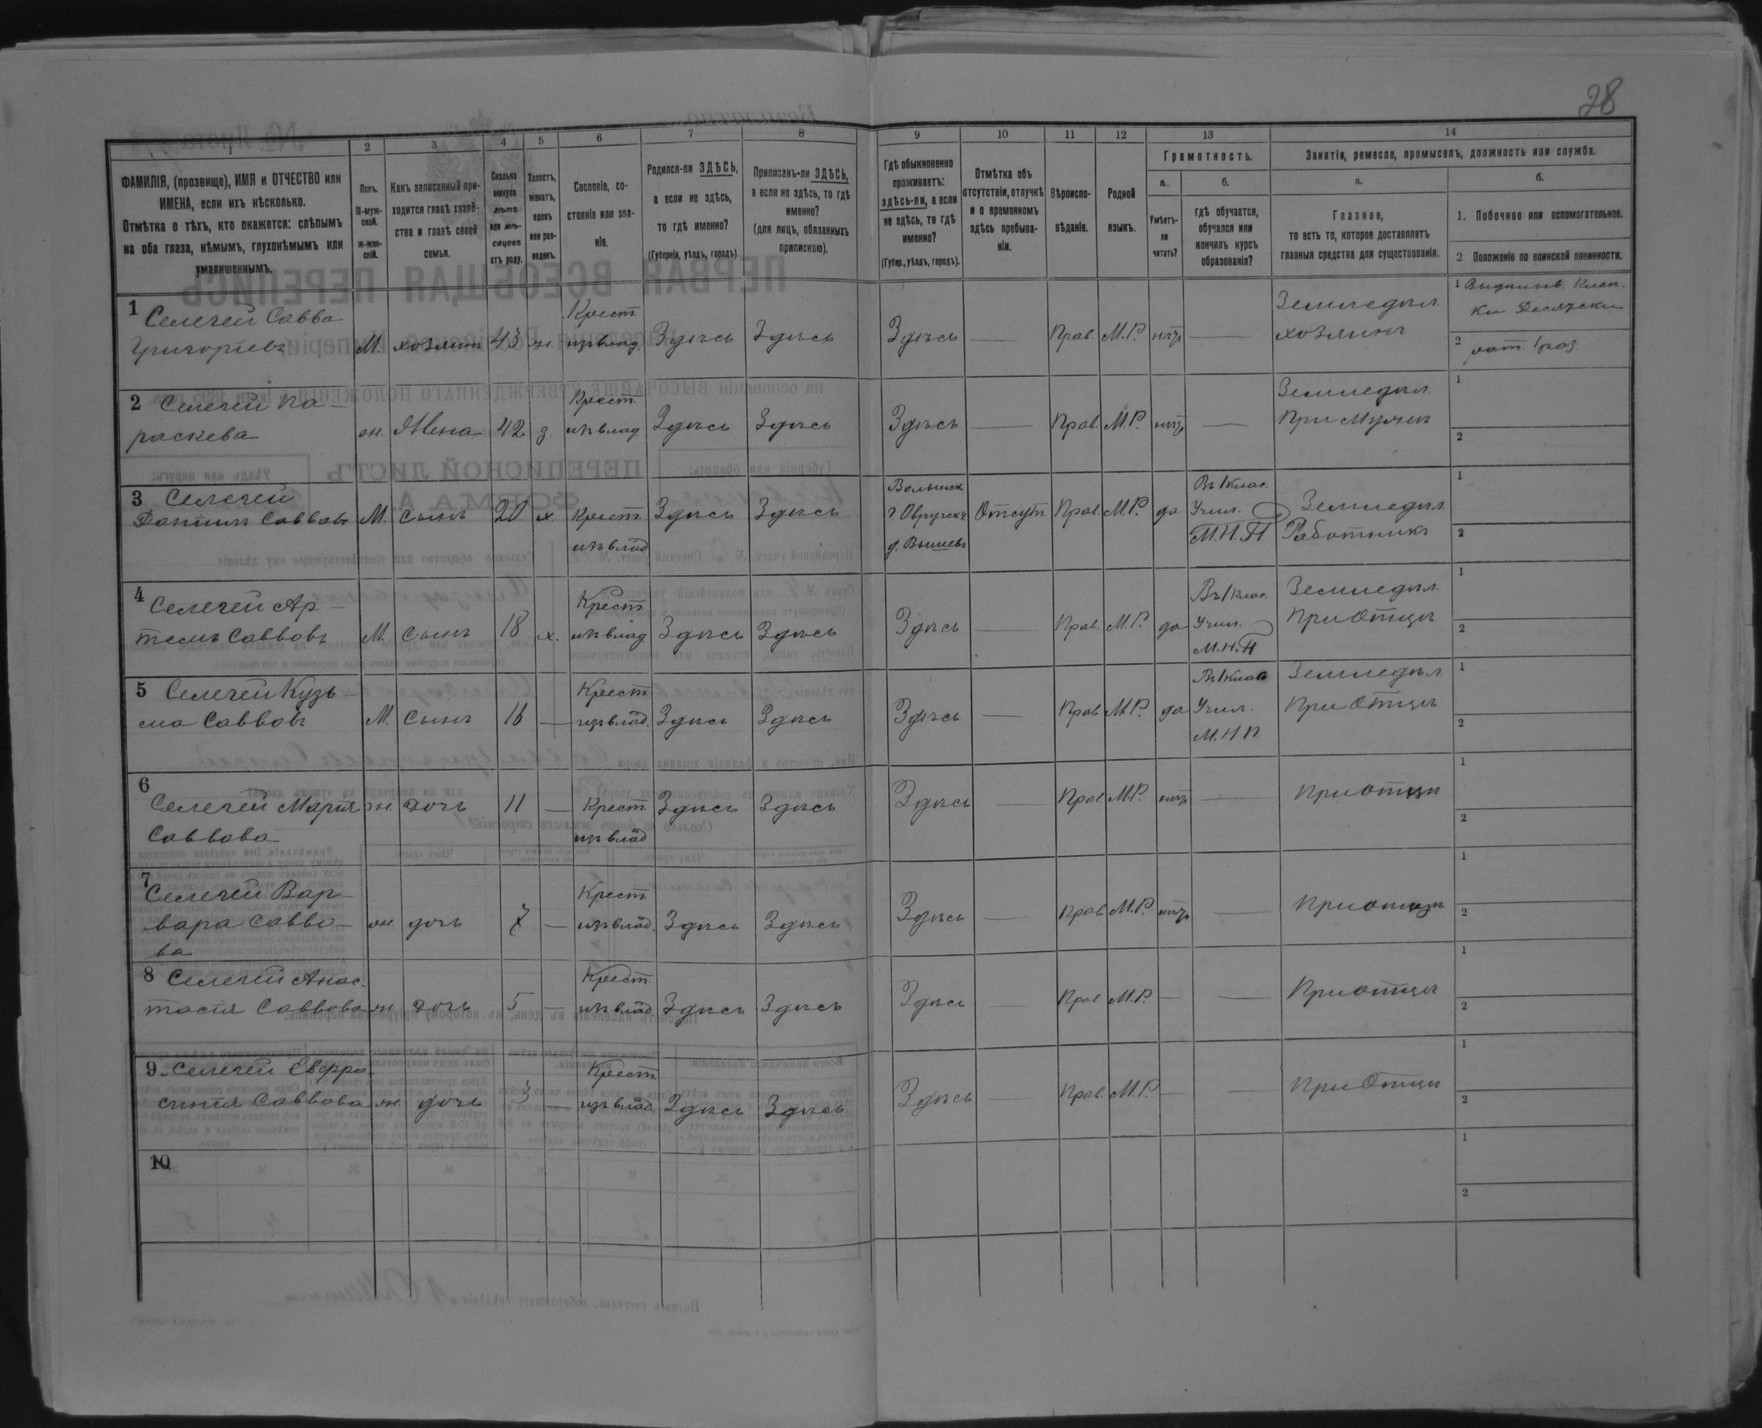 28
1 2 3 4 5 6 7 8 9 10 11 12 13 14
ФАМИЛІЯ, (прозвище), ИМЯ и ОТЧЕСТВО или
ИМЕНА, если ихъ нѣсколько.
Отмѣтка о тѣхъ, кто окажется: слѣпымъ
на оба глаза, нѣмымъ, глухонѣмымъ или
умалишеннымъ.
Полъ.
М-муж-
ской.
ж-жен-
скій.
Какъ записанный при-
ходится главѣ хозяй-
ства и главѣ своей
семьи.
Сколько
минуло
лѣтъ
или мѣ-
сяцевъ
отъ роду.
Холостъ,
женатъ,
вдовъ
или раз-
веденъ.
Сословіе, со-
стояніе или зва-
ніе.
Родился-ли ЗДѢСЬ,
а если не здѣсь,
то гдѣ именно?
(Губернія, уѣздъ, городъ)
Приписанъ-ли ЗДѢСЬ,
а если не здѣсь, то гдѣ
именно?
(для лицъ, обязанныхъ
припискою).
Гдѣ обыкновенно
проживаетъ:
здѣсь-ли, а если
не здѣсь, то гдѣ
именно?
(Губер., уѣздъ, городъ).
Отмѣтка объ
отсутствіи, отлучкѣ
и о временномъ
здѣсь пребыва-
ніи.
Вѣроиспо-
вѣданіе.
Родной
языкъ.
Грамотность.
а.
Умѣетъ-
ли
читать?
б.
гдѣ обучается,
обучался или
кончилъ курсъ
образованія?
Занятіе, ремесло, промыселъ, должность или служба.
а.
Главное,
то есть то, которое доставляетъ
главныя средства для существованія.
б.
1. Побочное или вспомогательное.
2 Положеніе по воинской повинности.
1 Селечей Савва
Григоріевъ М. хозяинъ 43 ж.
Крест.
изъ влад. Здѣсь Здѣсь Здѣсь — Прав. М.Р. нѣтъ —
Земледѣл.
хозяинъ
1
2
2 Селечей Па-
раскева ж. Жена 42 з.
Крест.
изъ влад Здѣсь Здѣсь Здѣсь — Прав. М.Р. нѣтъ —
Земледѣл.
При Мужѣ
1
2
3 Селечей
Даніилъ Саввовъ М. сынъ 20 х. Крест.
изъ влад Здѣсь Здѣсь
Волынск
г. Овручск.
Отсут. Прав. М.Р. да
Въ 1 клас.
Учил.
М.Н.П
Земледѣл.
Работникъ
1
2
4 Селечей Ар-
темъ Саввовъ М. Сынъ 18 х.
Крест.
изъ влад Здѣсь Здѣсь Здѣсь — Прав. М.Р. да
Въ 1 клас.
Учил.
М.Н.П
Земледѣл.
При Отцѣ
1
2
5 Селечей Кузь-
ма Саввовъ М. сынъ 16 —
Крест.
изъ влад. Здѣсь Здѣсь Здѣсь — Прав. М.Р. да
Въ 1 клас
Учил.
М.Н.П
Земледѣл
При Отцѣ
1
2
6
Селечей Марія
Саввова ж. дочь 11 — Крест
изъ влад Здѣсь Здѣсь Здѣсь — Прав М.Р. нѣтъ —
При отцѣ
1
2
7
Селечей Вар-
вара Савво-
ва ж. дочь 7 —
Крест
изъ влад. Здѣсь Здѣсь Здѣсь — Прав. М.Р. нѣтъ —
При отцѣ
1
2
8 Селечей Анас-
тасія Саввова ж. дочь 5 —
Крест
изъ влад Здѣсь Здѣсь Здѣсь — Прав М.Р. — —
При отцѣ
1
2
9 Селечей Евфро
синія Саввова ж. дочь 3 —
Крест
изъ влад Здѣсь Здѣсь Здѣсь — Прав. М.Р. — —
При Отцѣ
1
2
10
1
2